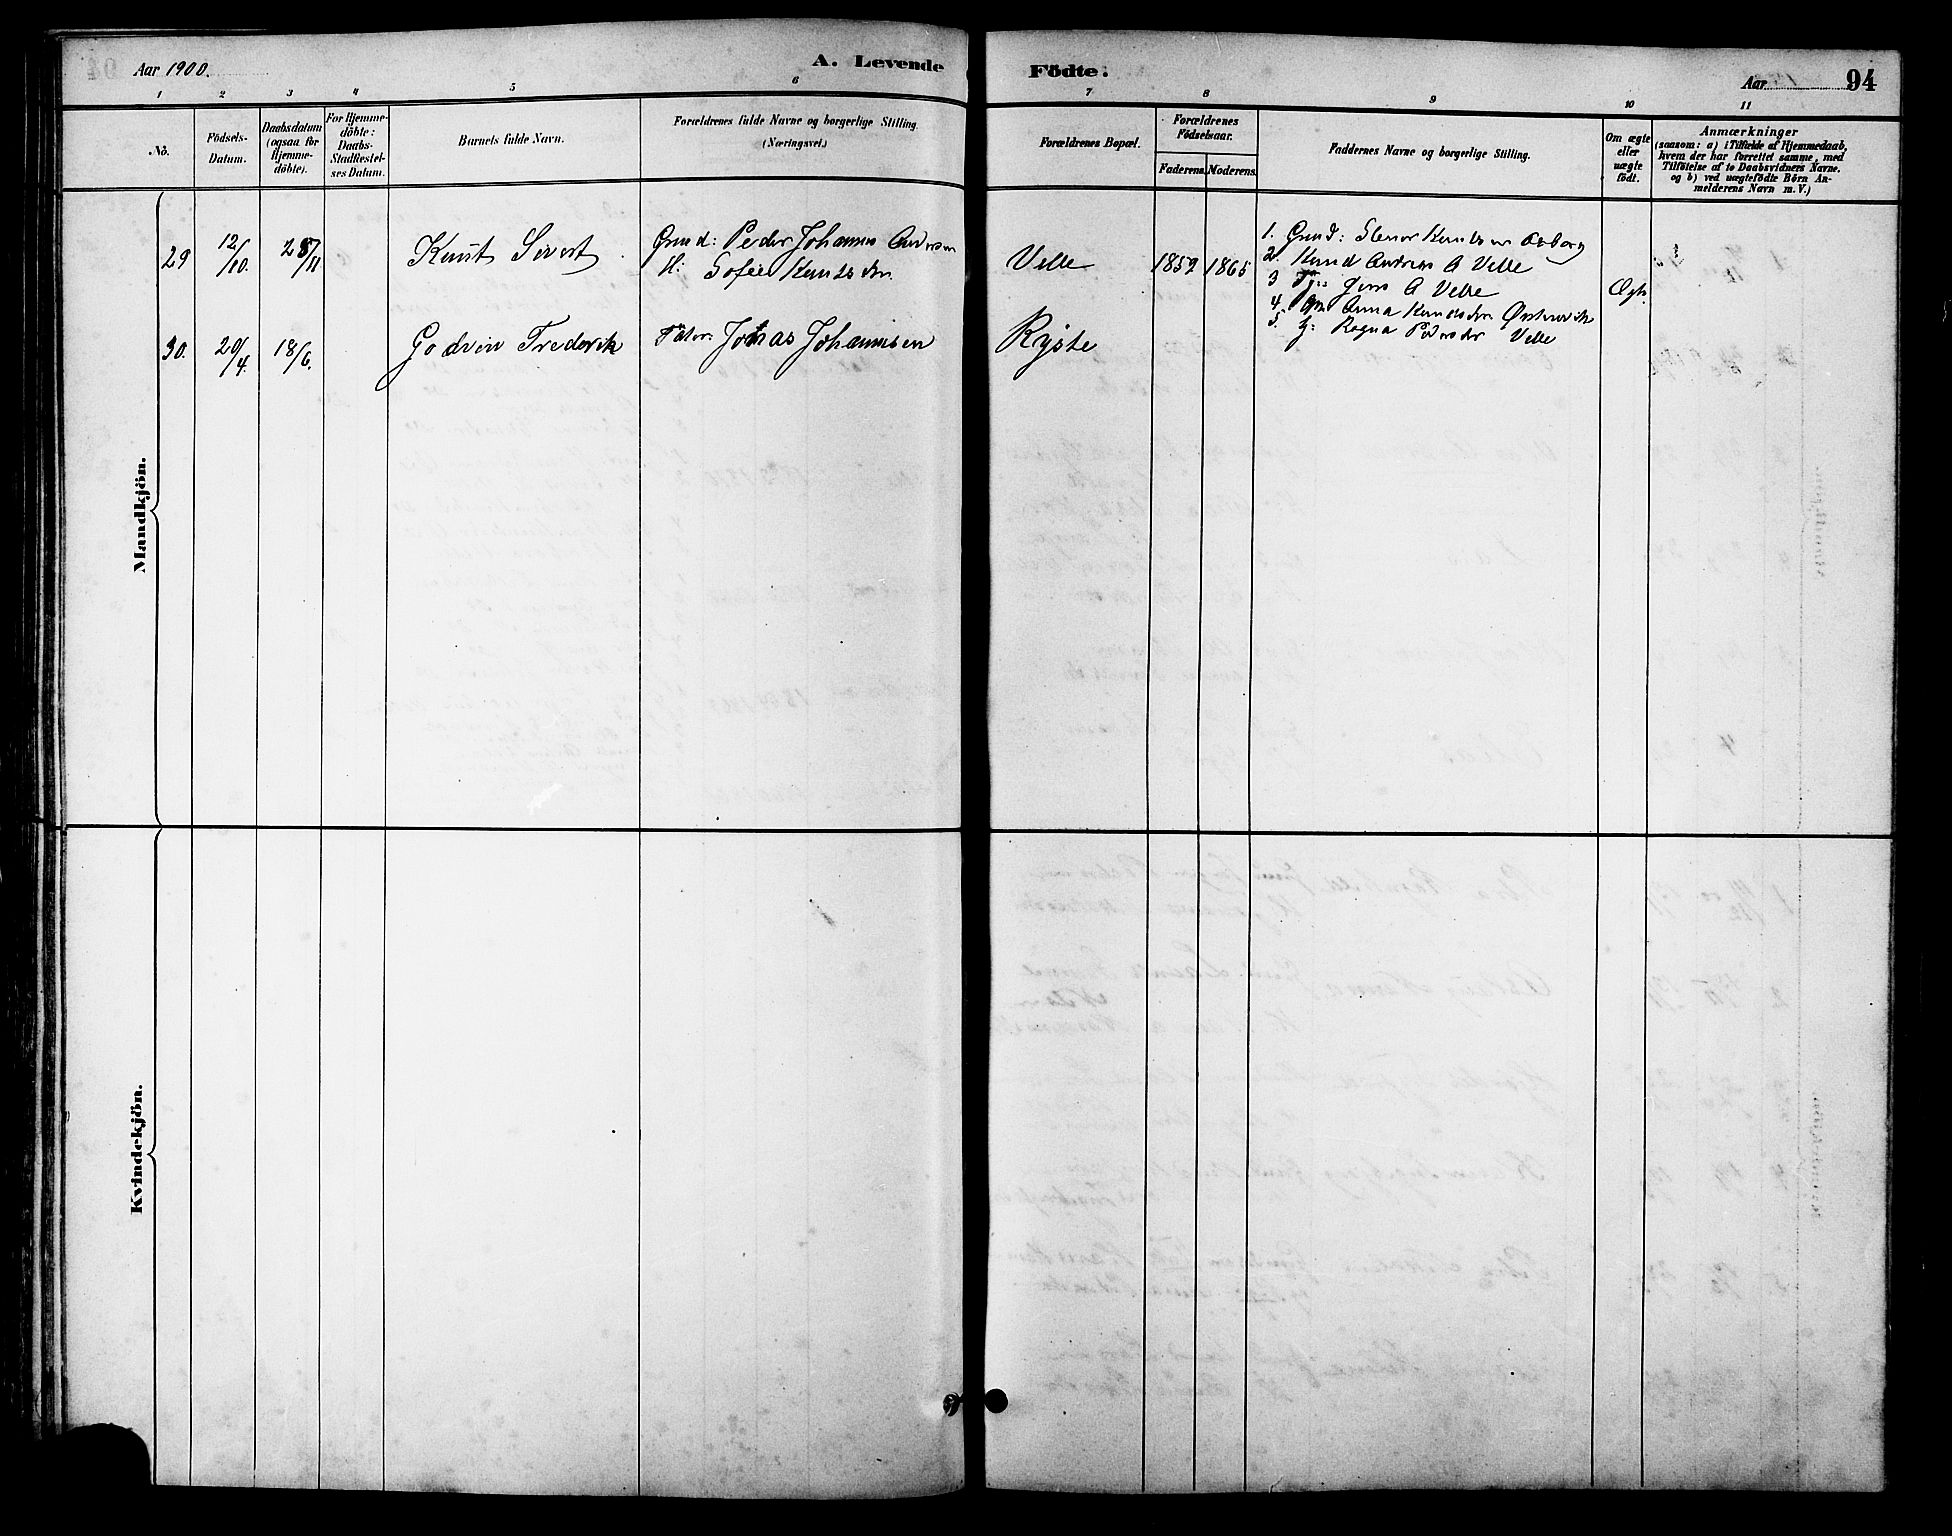 Aar 1900.
A. Levende
Födte.
Aar
94
1 2 3 4 5 6 7 8 9 10 11
No.
Födsels-
Datum.
Daabsdatum
(ogsaa for
Hjemme-
döbte).
For Hjemme-
döbte:
Daabs-
Stadfæstel-
ses Datum.
Barnets fulde Navn.
Forældrenes fulde Navne og borgerlige Stilling.
(Næringsvei.)
Forældrenes Bopæl.
Forældrenes
Födselsaar.
Faderens. Moderens.
Faddernes Navne og borgerlige Stilling.
Om ægte
eller
uægte
födt.
Anmærkninger
(saasom: a) i Tilfælde af Hjemmedaab,
hvem der har forrettet samme, med
Tilföielse af to Daabsvidners Navne.
og b) ved uægtefödte Börn An-
melderens Navn m. V.)
Mandkjön.
29 12/10. 25/11 Knut Sivert
Grmd: Peder Johannes Andersen
H: Sofie Knutsdtr.
Velle 1859 1865
1. Grmd: Knutsen Aaberg
2. Knud Andreas A Velle
3 Jens A Velle
4. Anna Knudsdtr.
5. Ragna Pedersdtr Velle
Ægte
30. 20/4. 18/6. Godvin Frederik
Fader: Jonas Johannisen
Ryste
Kvindekjön.